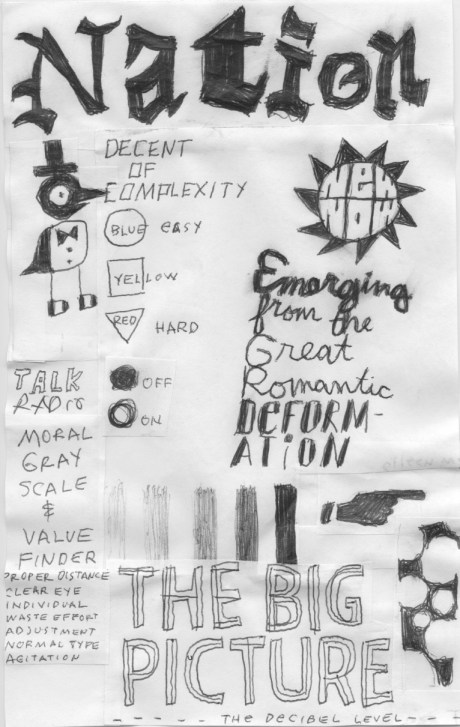 Nation
DECENT
OF
COMPLEXITY
BLUE EASY
YELLOW
RED HARD
NEW
Emerging
from the
Great
Romantic
DEFORM-
ATION
OFF
ON
TALK
RADIO
MORAL
GRAY
SCALE
&
VALUE
FINDER
PROPER DISTANCE
CLEAR EYE
INDIVIDUAL
WASTE EFFORT
ADJUSTMENT
NORMAL TYPE
AGITATION
THE BIG
PICTURE
THE DECIBEL LEVEL